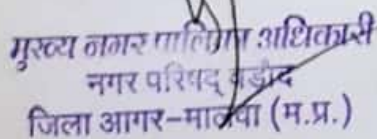 मुख्य नगर पालिका अधिकारी
नगर परिषद् बड़ौद
जिला आगर-मालवा (म.प्र.)